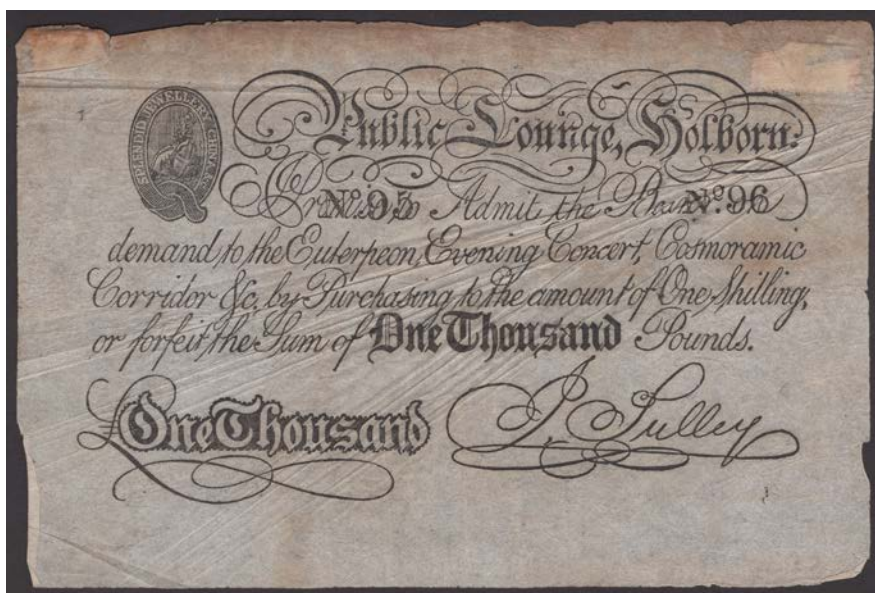 SPLENDID JEWELLERY, CHINA &c.
Public Lounge, Holborn.
Promise to Admit the Bearer on
No. 95 No. 96
demand, to the Euterpeon, Evening Concert, Cosmoramic
Corridor &c, by Purchasing to the amount of One Shilling,
or forfeit the Sum of One Thousand Pounds.
£ One Thousand J. Sulley